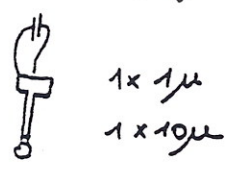 1x 1µ
1x10µ